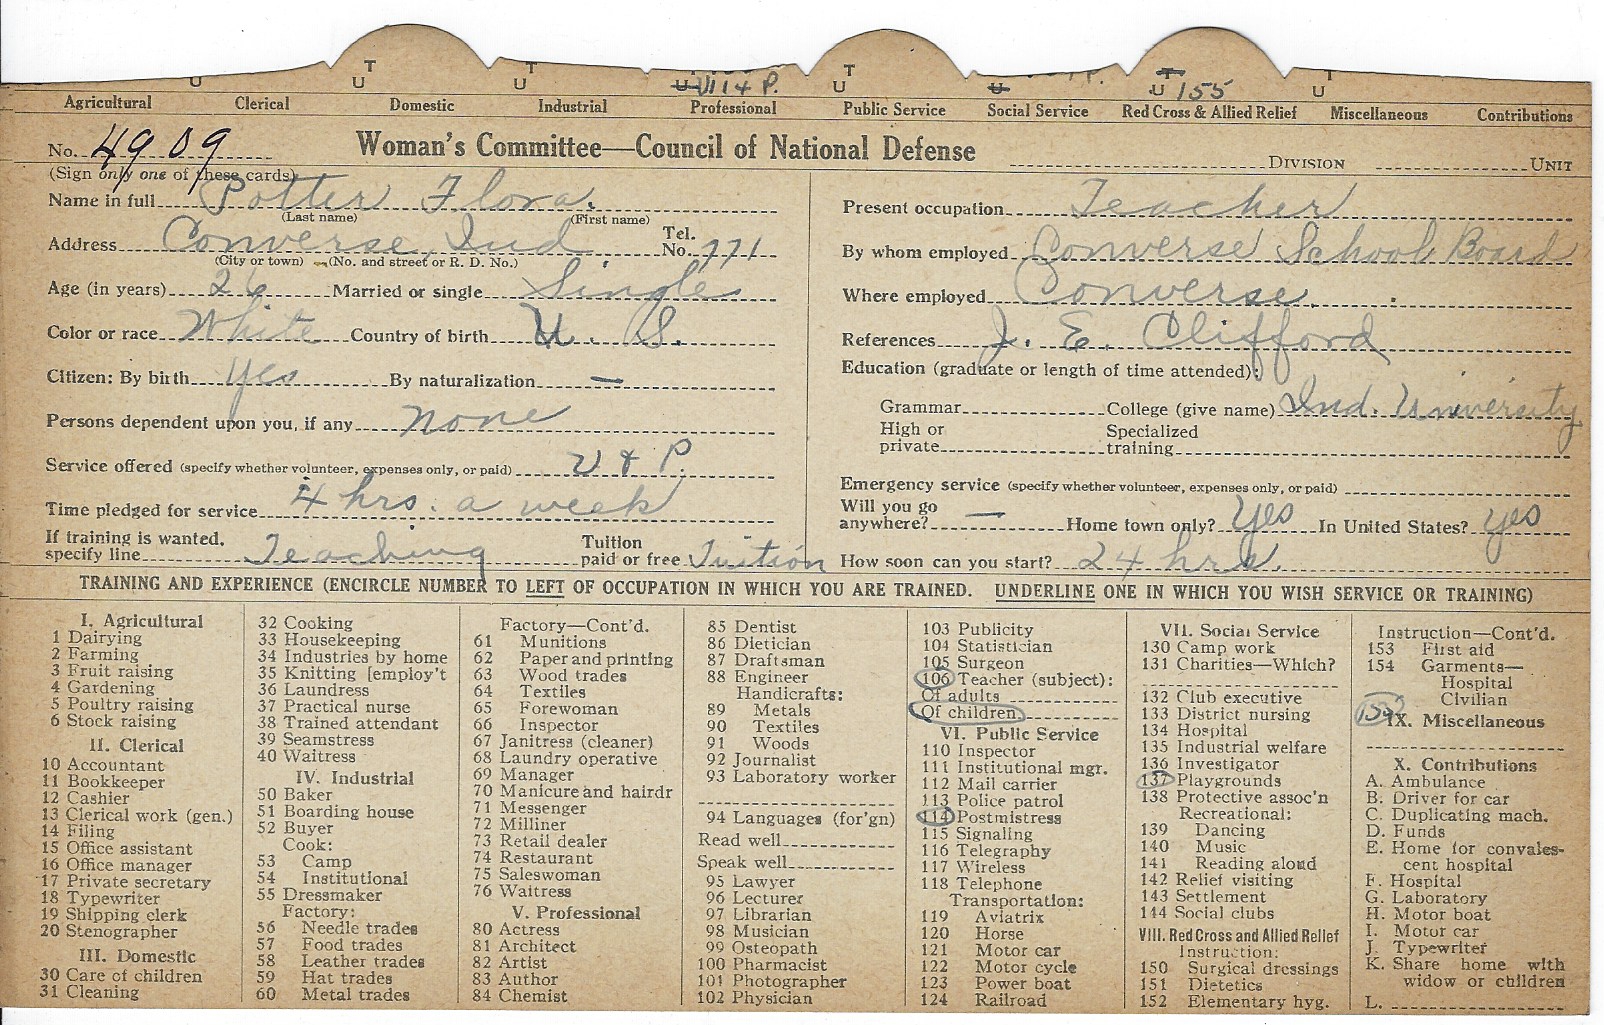 T T T T
U U U U VII4 P. U U P. U 155 U
Agricultural Clerical Domestic Industrial Professional Public Service Social Service Red Cross & Allied Relief Miscellaneous Contributions
No. 4909 Woman's Committee—Council of National Defense DIVISION UNIT
(Sign only one of these cards)
Name in full Potter Flora.
(Last name) (First name)
Address Converse, Ind Tel. No. 771
(City or town) (No. and street or R. D. No.)
Age (in years) 26 Married or single Single
Color or race White Country of birth U. S.
Citizen: By birth yes By naturalization —
Persons dependent upon you, if any none
Service offered (specify whether volunteer, expenses only, or paid) V & P.
Time pledged for service 4 hrs. a week
If training is wanted, specify line Teaching Tuition paid or free Tuition
Present occupation Teacher
By whom employed Converse School Board
Where employed Converse.
References J. E. Clifford
Education (graduate or length of time attended):
Grammar College (give name) Ind. University
High or private Specialized training
Emergency service (specify whether volunteer, expenses only, or paid)
Will you go anywhere? — Home town only? Yes In United States? yes
How soon can you start? 24 hrs.
TRAINING AND EXPERIENCE (ENCIRCLE NUMBER TO LEFT OF OCCUPATION IN WHICH YOU ARE TRAINED. UNDERLINE ONE IN WHICH YOU WISH SERVICE OR TRAINING)
I. Agricultural
1 Dairying
2 Farming
3 Fruit raising
4 Gardening
5 Poultry raising
6 Stock raising
II. Clerical
10 Accountant
11 Bookkeeper
12 Cashier
13 Clerical work (gen.)
14 Filing
15 Office assistant
16 Office manager
17 Private secretary
18 Typewriter
19 Shipping clerk
20 Stenographer
III. Domestic
30 Care of children
31 Cleaning
32 Cooking
33 Housekeeping
34 Industries by home
35 Knitting [employ't
36 Laundress
37 Practical nurse
38 Trained attendant
39 Seamstress
40 Waitress
IV. Industrial
50 Baker
51 Boarding house
52 Buyer
Cook:
53 Camp
54 Institutional
55 Dressmaker
Factory:
56 Needle trades
57 Food trades
58 Leather trades
59 Hat trades
60 Metal trades
Factory—Cont'd.
61 Munitions
62 Paper and printing
63 Wood trades
64 Textiles
65 Forewoman
66 Inspector
67 Janitress (cleaner)
68 Laundry operative
69 Manager
70 Manicure and hairdr
71 Messenger
72 Milliner
73 Retail dealer
74 Restaurant
75 Saleswoman
76 Waitress
V. Professional
80 Actress
81 Architect
82 Artist
83 Author
84 Chemist
85 Dentist
86 Dietician
87 Draftsman
88 Engineer
Handicrafts:
89 Metals
90 Textiles
91 Woods
92 Journalist
93 Laboratory worker
94 Languages (for'gn)
Read well
Speak well
95 Lawyer
96 Lecturer
97 Librarian
98 Musician
99 Osteopath
100 Pharmacist
101 Photographer
102 Physician
103 Publicity
104 Statistician
105 Surgeon
106 Teacher (subject):
Of adults
Of children
VI. Public Service
110 Inspector
111 Institutional mgr.
112 Mail carrier
113 Police patrol
114 Postmistress
115 Signaling
116 Telegraphy
117 Wireless
118 Telephone
Transportation:
119 Aviatrix
120 Horse
121 Motor car
122 Motor cycle
123 Power boat
124 Railroad
VII. Social Service
130 Camp work
131 Charities—Which?
132 Club executive
133 District nursing
134 Hospital
135 Industrial welfare
136 Investigator
137 Playgrounds
138 Protective assoc'n
Recreational:
139 Dancing
140 Music
141 Reading aloud
142 Relief visiting
143 Settlement
144 Social clubs
VIII. Red Cross and Allied Relief
Instruction:
150 Surgical dressings
151 Dietetics
152 Elementary hyg.
Instruction—Cont'd.
153 First aid
154 Garments—
Hospital
Civilian
155
IX. Miscellaneous
X. Contributions
A. Ambulance
B. Driver for car
C. Duplicating mach.
D. Funds
E. Home for convales-
cent hospital
F. Hospital
G. Laboratory
H. Motor boat
I. Motor car
J. Typewriter
K. Share home with
widow or children
L.